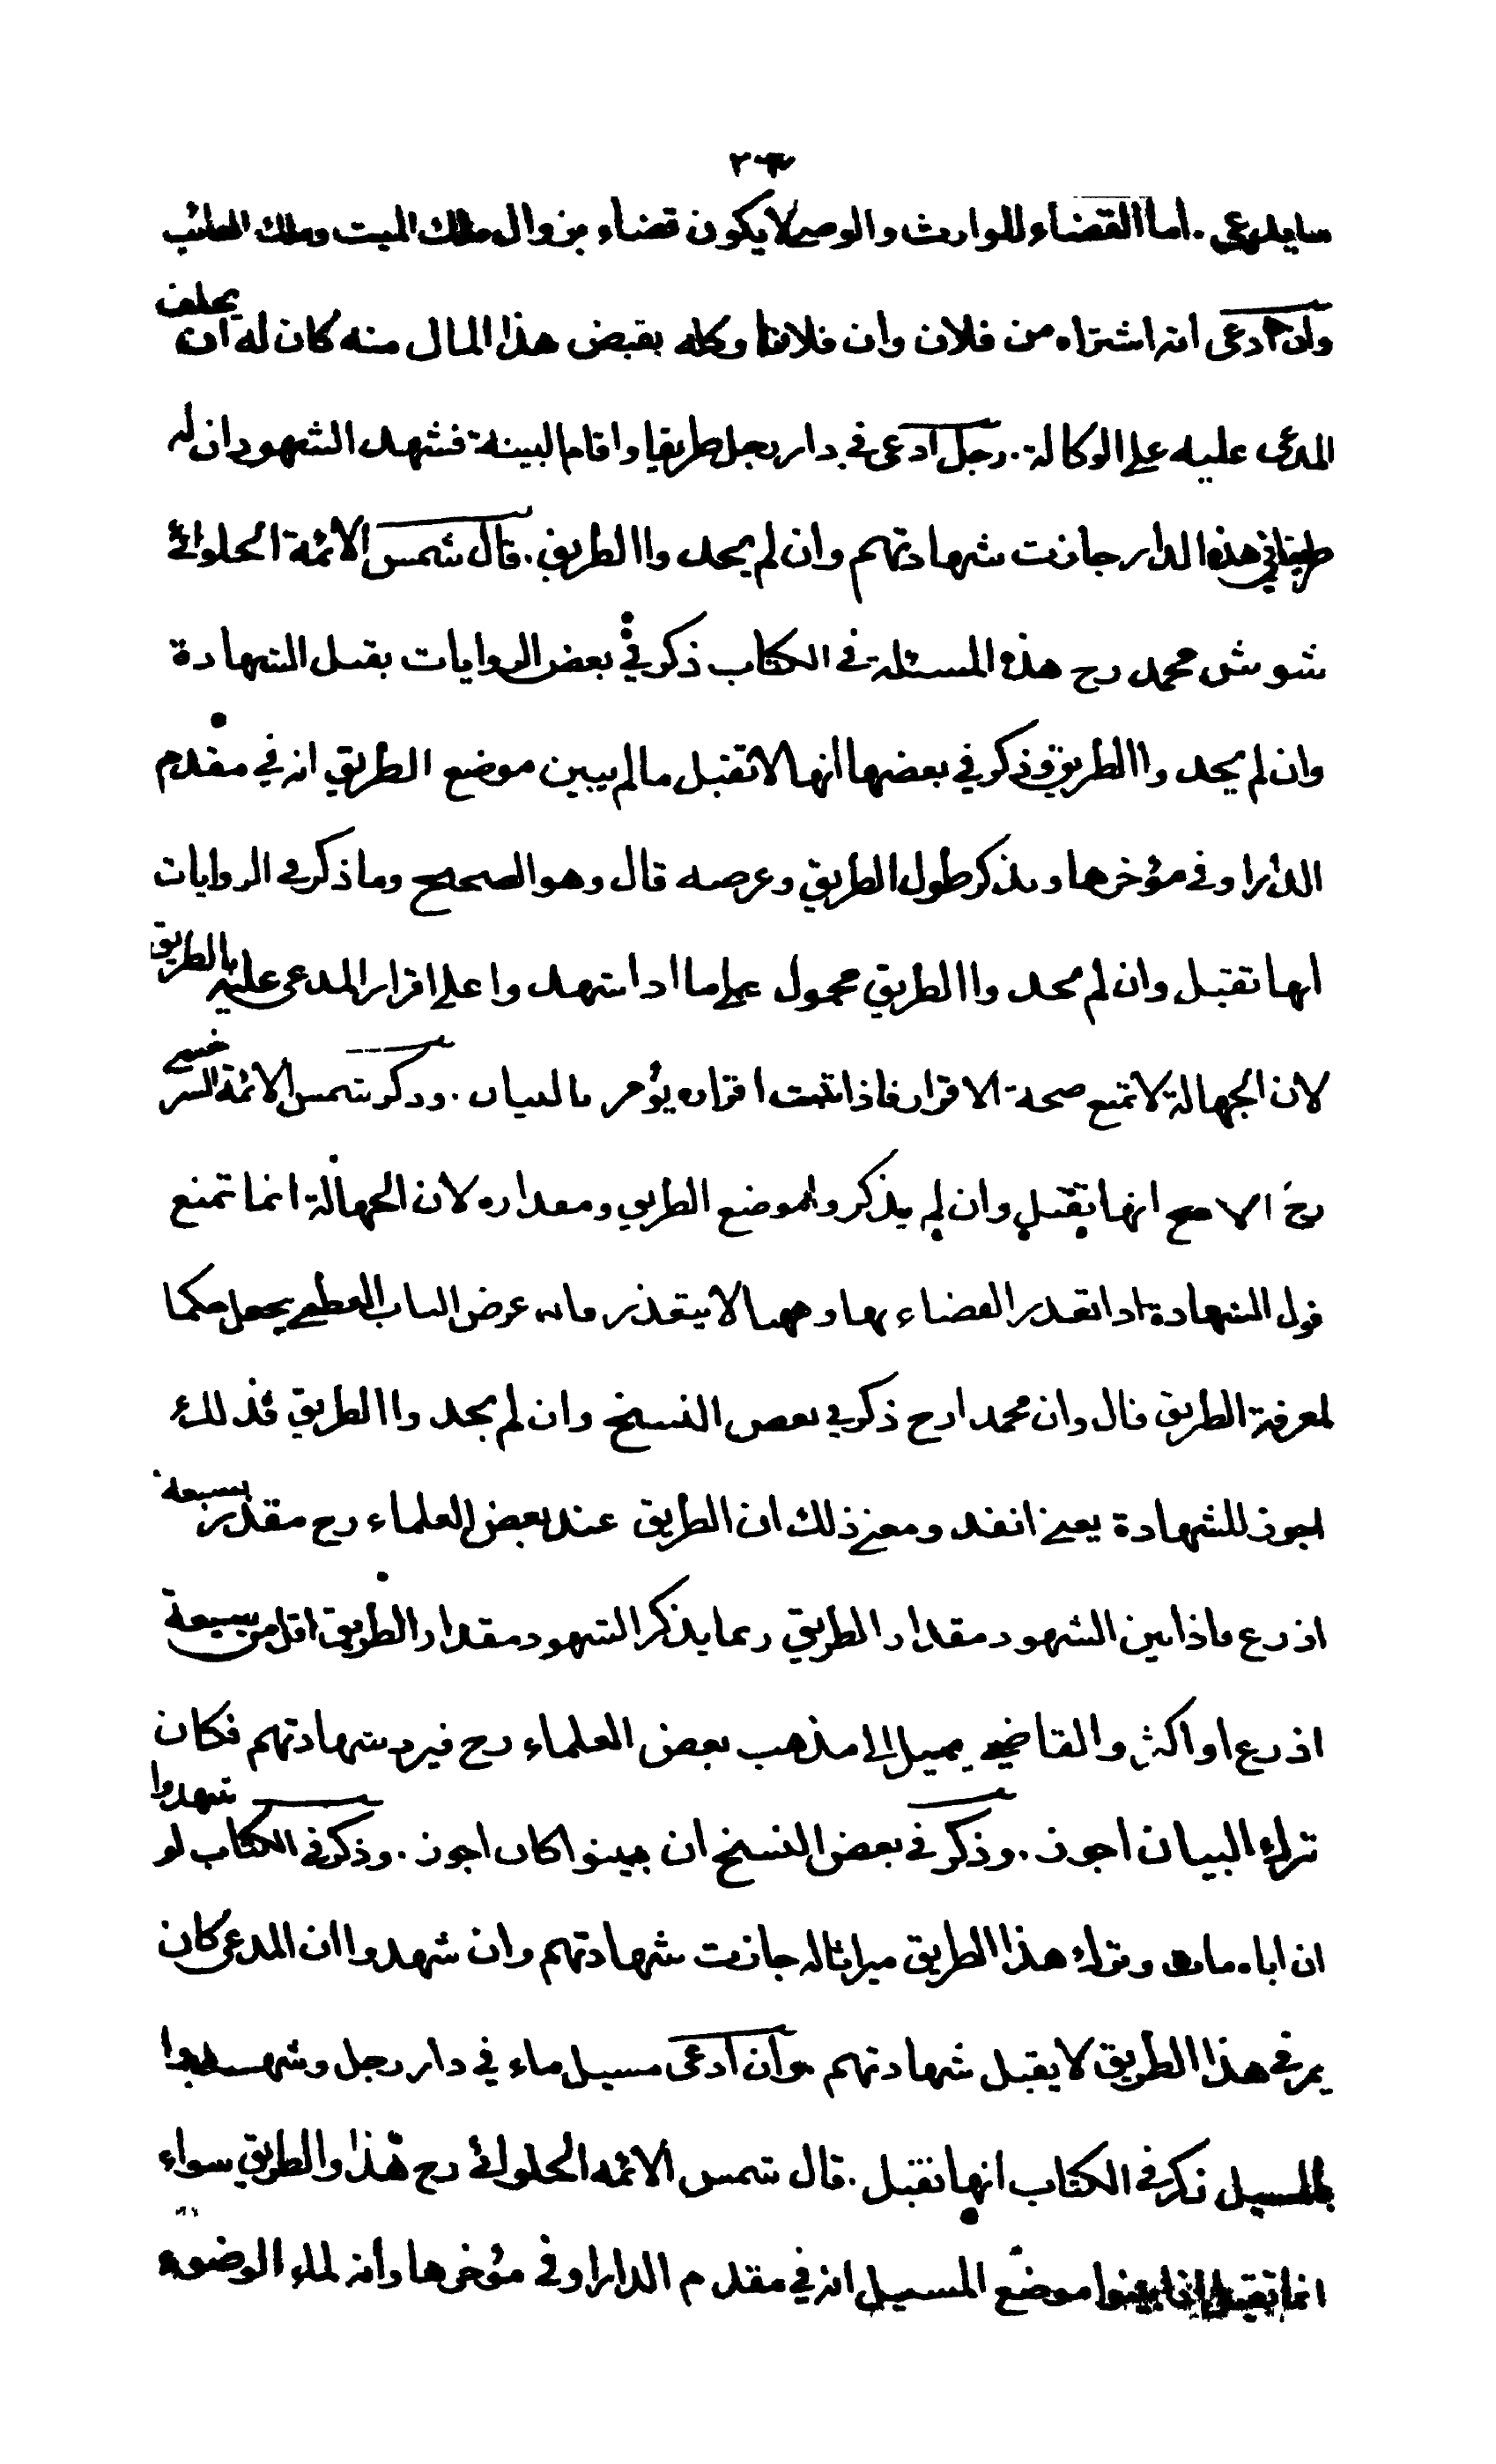 ما يدعى . اما القضاء للوارث والوصي لا يكون قضاء بزوال ملك الميت وملك الغائب
وان ادعى انه اشتراه من فلان وان فلانا وكله بقبض هذا المال منه كان له ان يحلف
المدعى عليه على الوكالة . رجل ادعى في دار رجل طريقا واقام البينة فشهد الشهود ان له
طريقا في هذه الدار جازت شهادتهم وان لم يحدوا الطريق . قال شمس الائمة الحلوائي
شوش محمد رح هذه المسئلة في الكتاب ذكر في بعض الروايات يقبل الشهادة
وان لم يحدوا الطريق وذكر في بعضها انها لا تقبل ما لم يبين موضع الطريق انه في مقدم
الدار او في مؤخرها ويذكر طول الطريق وعرضه قال وهو الصحيح وما ذكر في الروايات
انها تقبل وان لم يحدوا الطريق محمول على ما اذا شهدوا على اقرار المدعى عليه بالطريق
لان الجهالة لا تمنع صحة الاقرار فاذا ثبت اقراره يؤمر بالبيان . وذكر شمس الائمة السرخسي
رح الاصح انها تقبل وان لم يذكروا موضع الطريق ومقداره لان الجهالة انما تمنع
قبول الشهادة اذا تعذر القضاء بها وههنا لا يتعذر فانه عرض الباب العظمى يجعل حكما
لمعرفة الطريق قال وان محمدا رح ذكر في بعض النسخ وان لم يحدوا الطريق فذلك
اجوز للشهادة يعني انفذ ومعنى ذلك ان الطريق عند بعض العلماء رح مقدر بسبعة
اذرع فاذا بين الشهود مقدار الطريق ربما يذكر الشهود مقدار الطريق اقل من سبعة
اذرع او اكثر والقاضي يميل الى مذهب بعض العلماء رح فيرد شهادتهم فكان
ترك البيان اجوز . وذكر في بعض النسخ ان يبينوا كان اجوز . وذكر في الكتاب لو شهدوا
ان اباه مات وترك هذا الطريق ميراثا له جازت شهادتهم وان شهدوا ان المدعى كان
يمر في هذا الطريق لا يقبل شهادتهم . وان ادعى مسيل ماء في دار رجل وشهدوا
بالمسيل ذكر في الكتاب انها تقبل . قال شمس الائمه الحلوائي رح هذا والطريق سواء
انما تقبل اذا بينوا موضع المسيل انه في مقدم الدار او في مؤخرها وانه لماء الوضوء